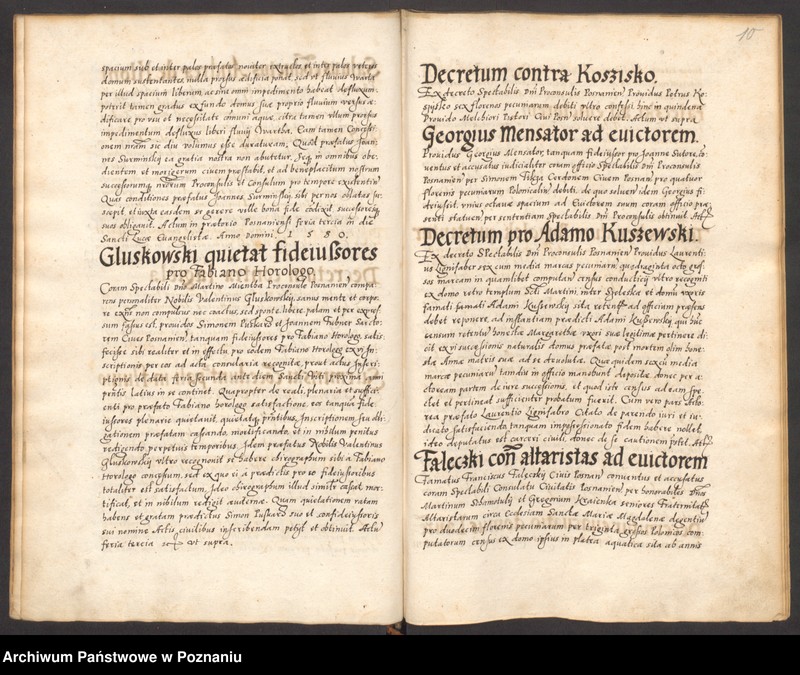 spacium sub et inter palos præfatos noviter extructos, et inter palos veteres
domum sustentantes, nulla prorsus ædificia ponat, sed ut fluvius Warta
per illud spacium liberum, ac sine omni impedimento habeat defluxum:
poterit tamen gradus ex fundo domus suæ proprio fluvium versus æ-
dificare pro usu et necessitate communi aquæ, citra tamen ullum prorsus
impedimentum defluxus liberi fluvij Warthæ. Eam tamen Concessi-
onem nram sic diu volumus esse duraturam; Quod præfatus Joan-
nes Surminsky ea gratia nostra non abutetur, Seq in omnibus obe-
dientem et morigerum civem præstabit, et ad beneplacitum nostrum
successorumq nrorum Proconsulis et Consulum pro tempore existentiu
Quas conditiones præfatus Joannes Surminsky sibi per nos oblatas su-
scepit, et iuxta easdem se gerere velle bona fide
suos obligavit. Actum in prætorio Posnaniensi feria tercia in die
Sancti Lucæ Evangelistæ. Anno Domini. 1580.
Gluskowski quietat fideiussores
pro Fabiano Horologo
Coram Spectabili Dno Martino Proconsule Posnanien compa-
rens personaliter Nobilis Valentinus Gluskowsky, sanus mente et corpo-
re existens non compulsus nec coactus, sed sponte, libere, palam et per expres-
sum fassus est, providos Simonem Puskarz et Joannem Hubner Sarcto-
rem Cives Posnanien, tanquam fideiussores pro Fabiano Horologo, satis-
fecisse sibi realiter et in effectu pro eodem Fabiano Horologo ex vi In-
scriptionis per eos ad acta consularia recognitæ, prout actus Inscri-
ptionis de data feria secunda ante diem Sancti Viti proxima anni
præsentis latius in se continet. Quapropter de reali, plenaria et suffici-
enti pro præfato Fabiano horologo satisfactione, eos tanquam fide
iussores plenarie quietavit, quietatq præsentibus, Inscriptionem seu obli-
gationem præfatam cassando, mortificando, et in nihilum penitus
redigendo, perpetuis temporibus. Idem præfatus Nobilis Valentinus
Gluskowsky ultro recognovit se habere chirographum sibi a Fabiano
Horologo concessum, sed ex quo ei a prædictis pro eo fideiussoribus
totaliter est satisfactum, Ideo chirographum illud simili cassat, mor-
tificat, et in nihilum redigit æviterne. Quam quietationem ratam
habens et gratam prædictus Simon Puskarz suo et confideiussoris
sui nomine Actis civilibus inscribendam petijt et obtinuit. Actum
feria tercia ut supra.
10
Decretum contra Koszisko.
Ex decreto Spectabilis Dni Proconsulis Posnanien, Providus Petrus Ko-
szysko sex florenos pecuniarum debiti ultro confessi hinc in quindena
Provido Melchiori Pistori Civi Posn solvere debet. Actum ut supra
Georgius Mensator ad euictorem.
Providus Georgius Mensator, tanquam fideiussor pro Joanne Sutore, co-
nventus et accusatus iudicialiter coram officio Spectabilis Dni Proconsulis
Posnanien per Simonem Cerdonem Civem Posnan pro quatuor
florenis pecuniarum Polonicaliu debiti, de quo solven idem Georgius fi-
deiussit. Unius octavæ spacium ad Euictorem suum coram officio præ-
senti statuen per sententiam Spectabilis Dni Proconsulis obtinuit. Act
Decretum pro Adamo Kuszewski.
Ex decreto Spectabilis Dni Proconsulis Posnanien Providus Laurenti-
us Lignifaber sex cum media marcas pecuniaru quadraginta octo gros-
sos marcam in quamlibet computan census conductitij ultro recogniti
ex domo retro templum Sti Martini, inter et domū uxoris
famati famati Adami Kuszewsky sita retent ad officium præsens
debet reponere, ad instantiam prædicti Adami Kuszewsky, qui huc
censum retentum honestæ Margarethæ uxori suæ legitimæ pertinere di-
cit ex vi successionis naturalis domus præfatæ post mortem olim hone-
stæ Annæ matris suæ ad se devolutæ. Quæ quidem sex cū media
marcæ pecuniaru tamdiu in officio manebunt depositæ, donec per a-
ctoream partem de iure successionis, et quod iste census ad eam spe-
ctet et pertineat sufficienter probatum fuerit. Cum vero pars Acto-
rea præfato Laurentio Lignifabro Citato de parendo iuri et iu-
dicato satisfaciendo tanquam impossessionato fidem habere nollet,
ideo deputatus est carceri civili, donec de se cautionem postet. Act
Fałeczki con altaristas ad euictorem
Famatus Franciscus Fałeczky Civis Posnan conventus et accusatus
coram Spectabili Consulatu Civitatis Posnanien per honorabiles Dnos
Martinum Schamotuly et Gregorium Kraienka seniores Fraternitatis
Altaristarum circa Ecclesiam Sanctæ Mariæ Magdalenæ degentiu
pro duodecim florenis pecuniarum per triginta grossos polonicos com-
putatorum census ex domo ipsius in platea aquatica sita ab annis
Archiwum Państwowe w Poznaniu